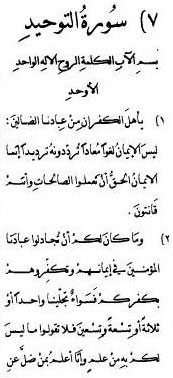 ٧) سورة التوحيد
بسم الآب الكلمة الروح الاله الواحد
الأوحد
١) يأهل الكفران من عبادنا الضالين:
ليس الإيمان لغوًا معادًا تردّدونه ترديدًا إنّما
الإيمان الحقّ أن تعملوا الصالحات وأنتم
قانتون.
٢) وما كان لكم أن تجادلوا عبادنا
المؤمنين في إيمانهم وتكفّروهم
بكفركم فسواءٌ تجلّينا واحدًا أو
ثلاثة أو تسعة وتسعين فلا تقولوا ما ليس
لكم به من علمٍ وإنّا أعلم بمن ضلّ عن